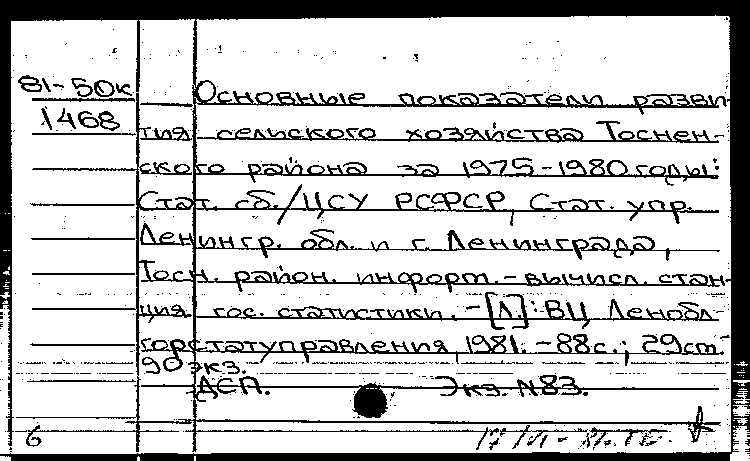 81-50к
1468
Основные показатели разви-
тия сельского хозяйства Тоснен-
ского района за 1975-1980 годы:
Стат. сб./ЦСУ РСФСР, Стат. упр.
Ленингр. обл. и г. Ленинграда,
Тосн. район. информ.-вычисл. стан-
ция гос. статистики. -[Л.]: ВЦ Ленобл-
горстатуправления, 1981. -88с.; 29см.-
90экз.
ДСП. Экз. N83.
6
17/VI-81.